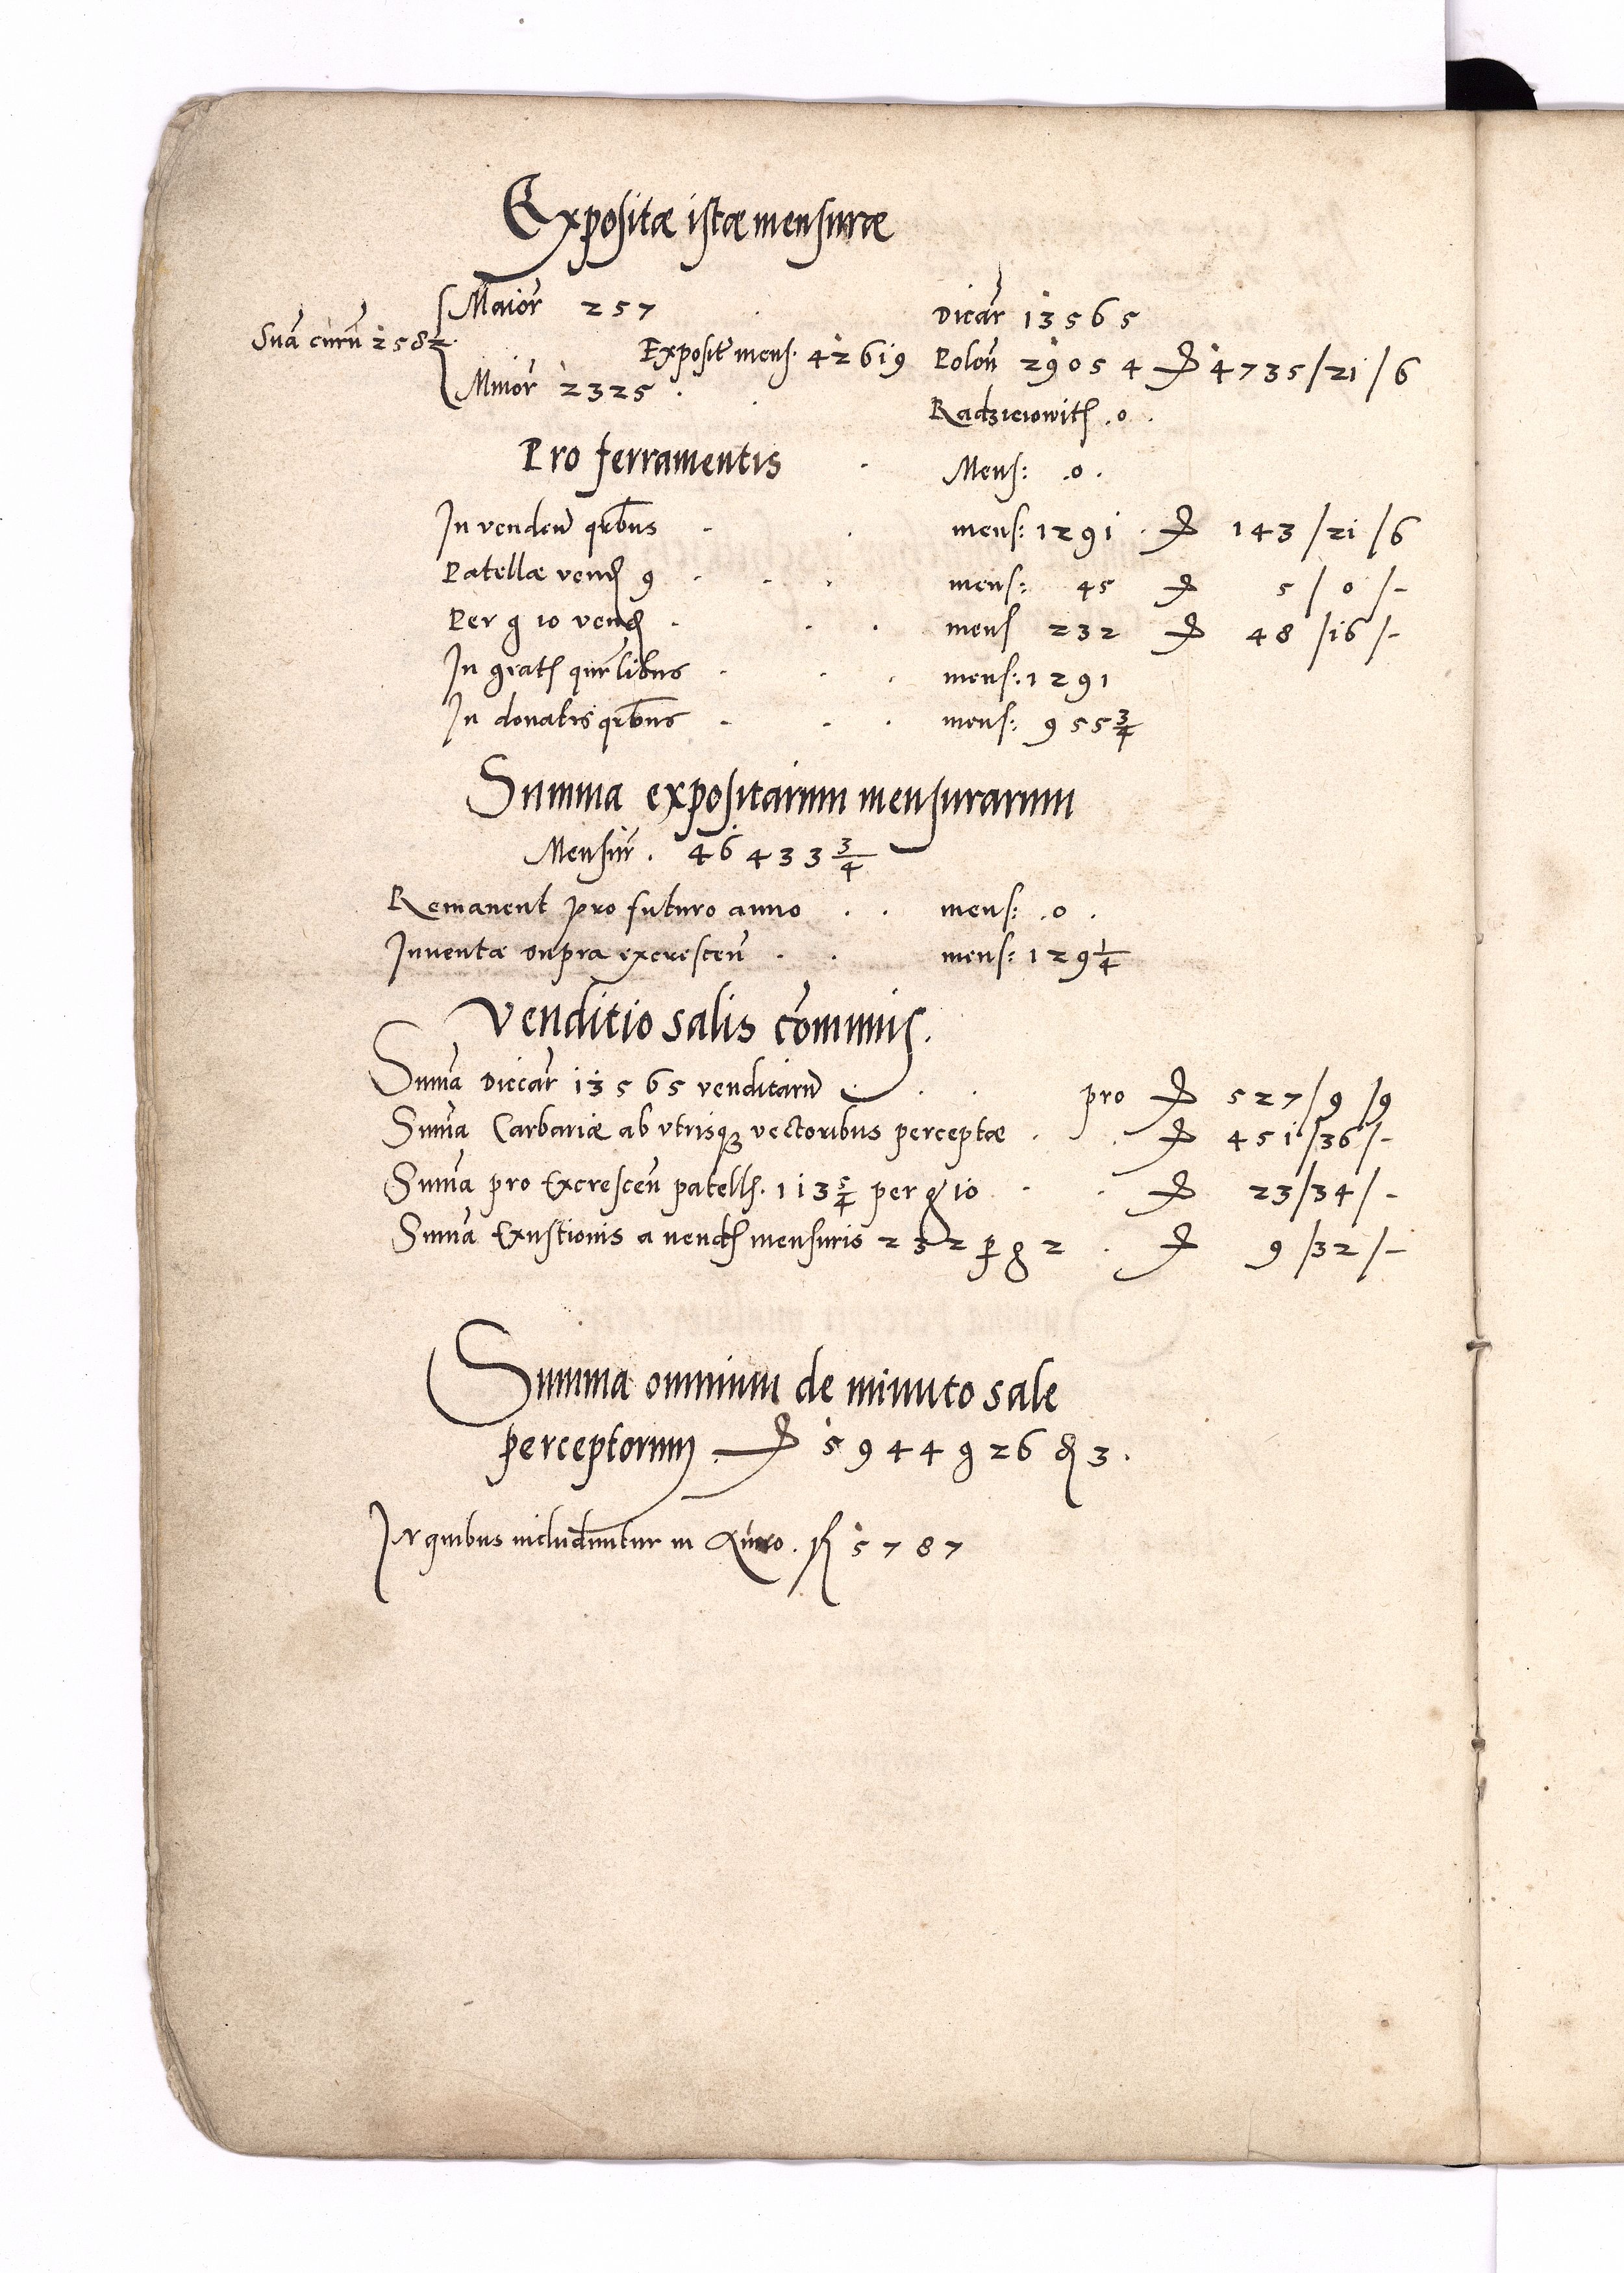 Expositæ istæ mensuræ
Maior 257 Dicar 13565
Suma curru 2582 Exposit mens. 42619 Polon 29054 4735/21/6
Minor 2325 . Radzieiowits . 0 .
Pro ferramentis . Mens: . 0 .
In venden qrbus . . mens: 1291 . 143/21/6
Patellæ vend 9 . . . mens: 45 5/0/-
Per g 10 vend . . . mens 232 48/16/-
In grats qurlibus . . . mens: 1291
In donatis qrbus . . . mens: 955 3/4
Summa expositarum mensurarum
Mensur . 46433 3/4
Remanent pro futuro anno . . mens: . 0 .
Inventæ supra excrescen . . mens: 129 1/4
Venditio salis cōmunis .
Suma Diccar 13565 venditaru . . . pro 527/9/9
Suma Carbariæ ab utrisq vectoribus perceptæ . . 451/36/-
Suma pro Excrescen patells . 113 5/4 per g 10 . . 23/34/-
Suma Exustionis a vends mensuris 232 p g 2 . 9/32/-
Summa omnium de minuto sale
perceptorum 5944 g 26 d 3 .
In quibus includuntur in Auro . fl 5787